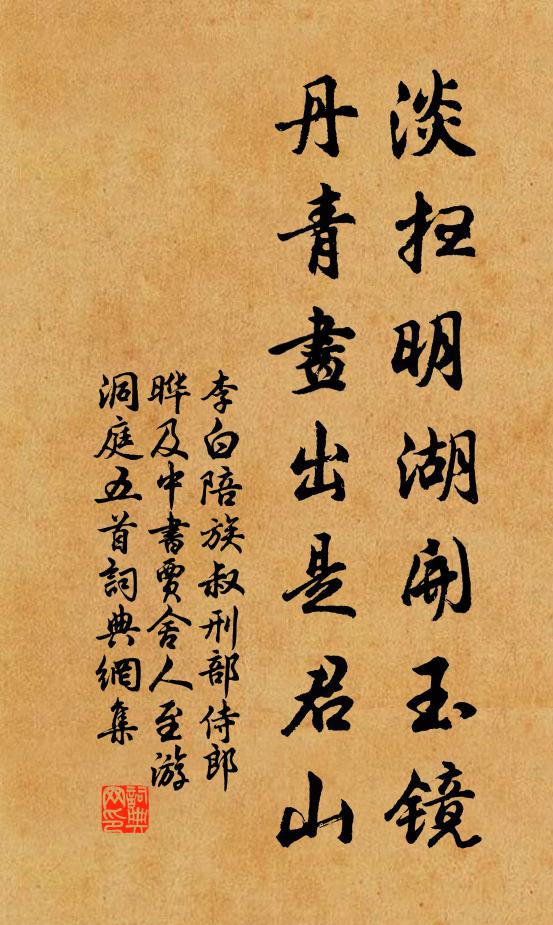 淡扫明湖開玉镜
丹青畫出是君山
李白陪族叔刑部侍郎
晔及中書賈舍人至游
洞庭五首詞典網集
詞典網印